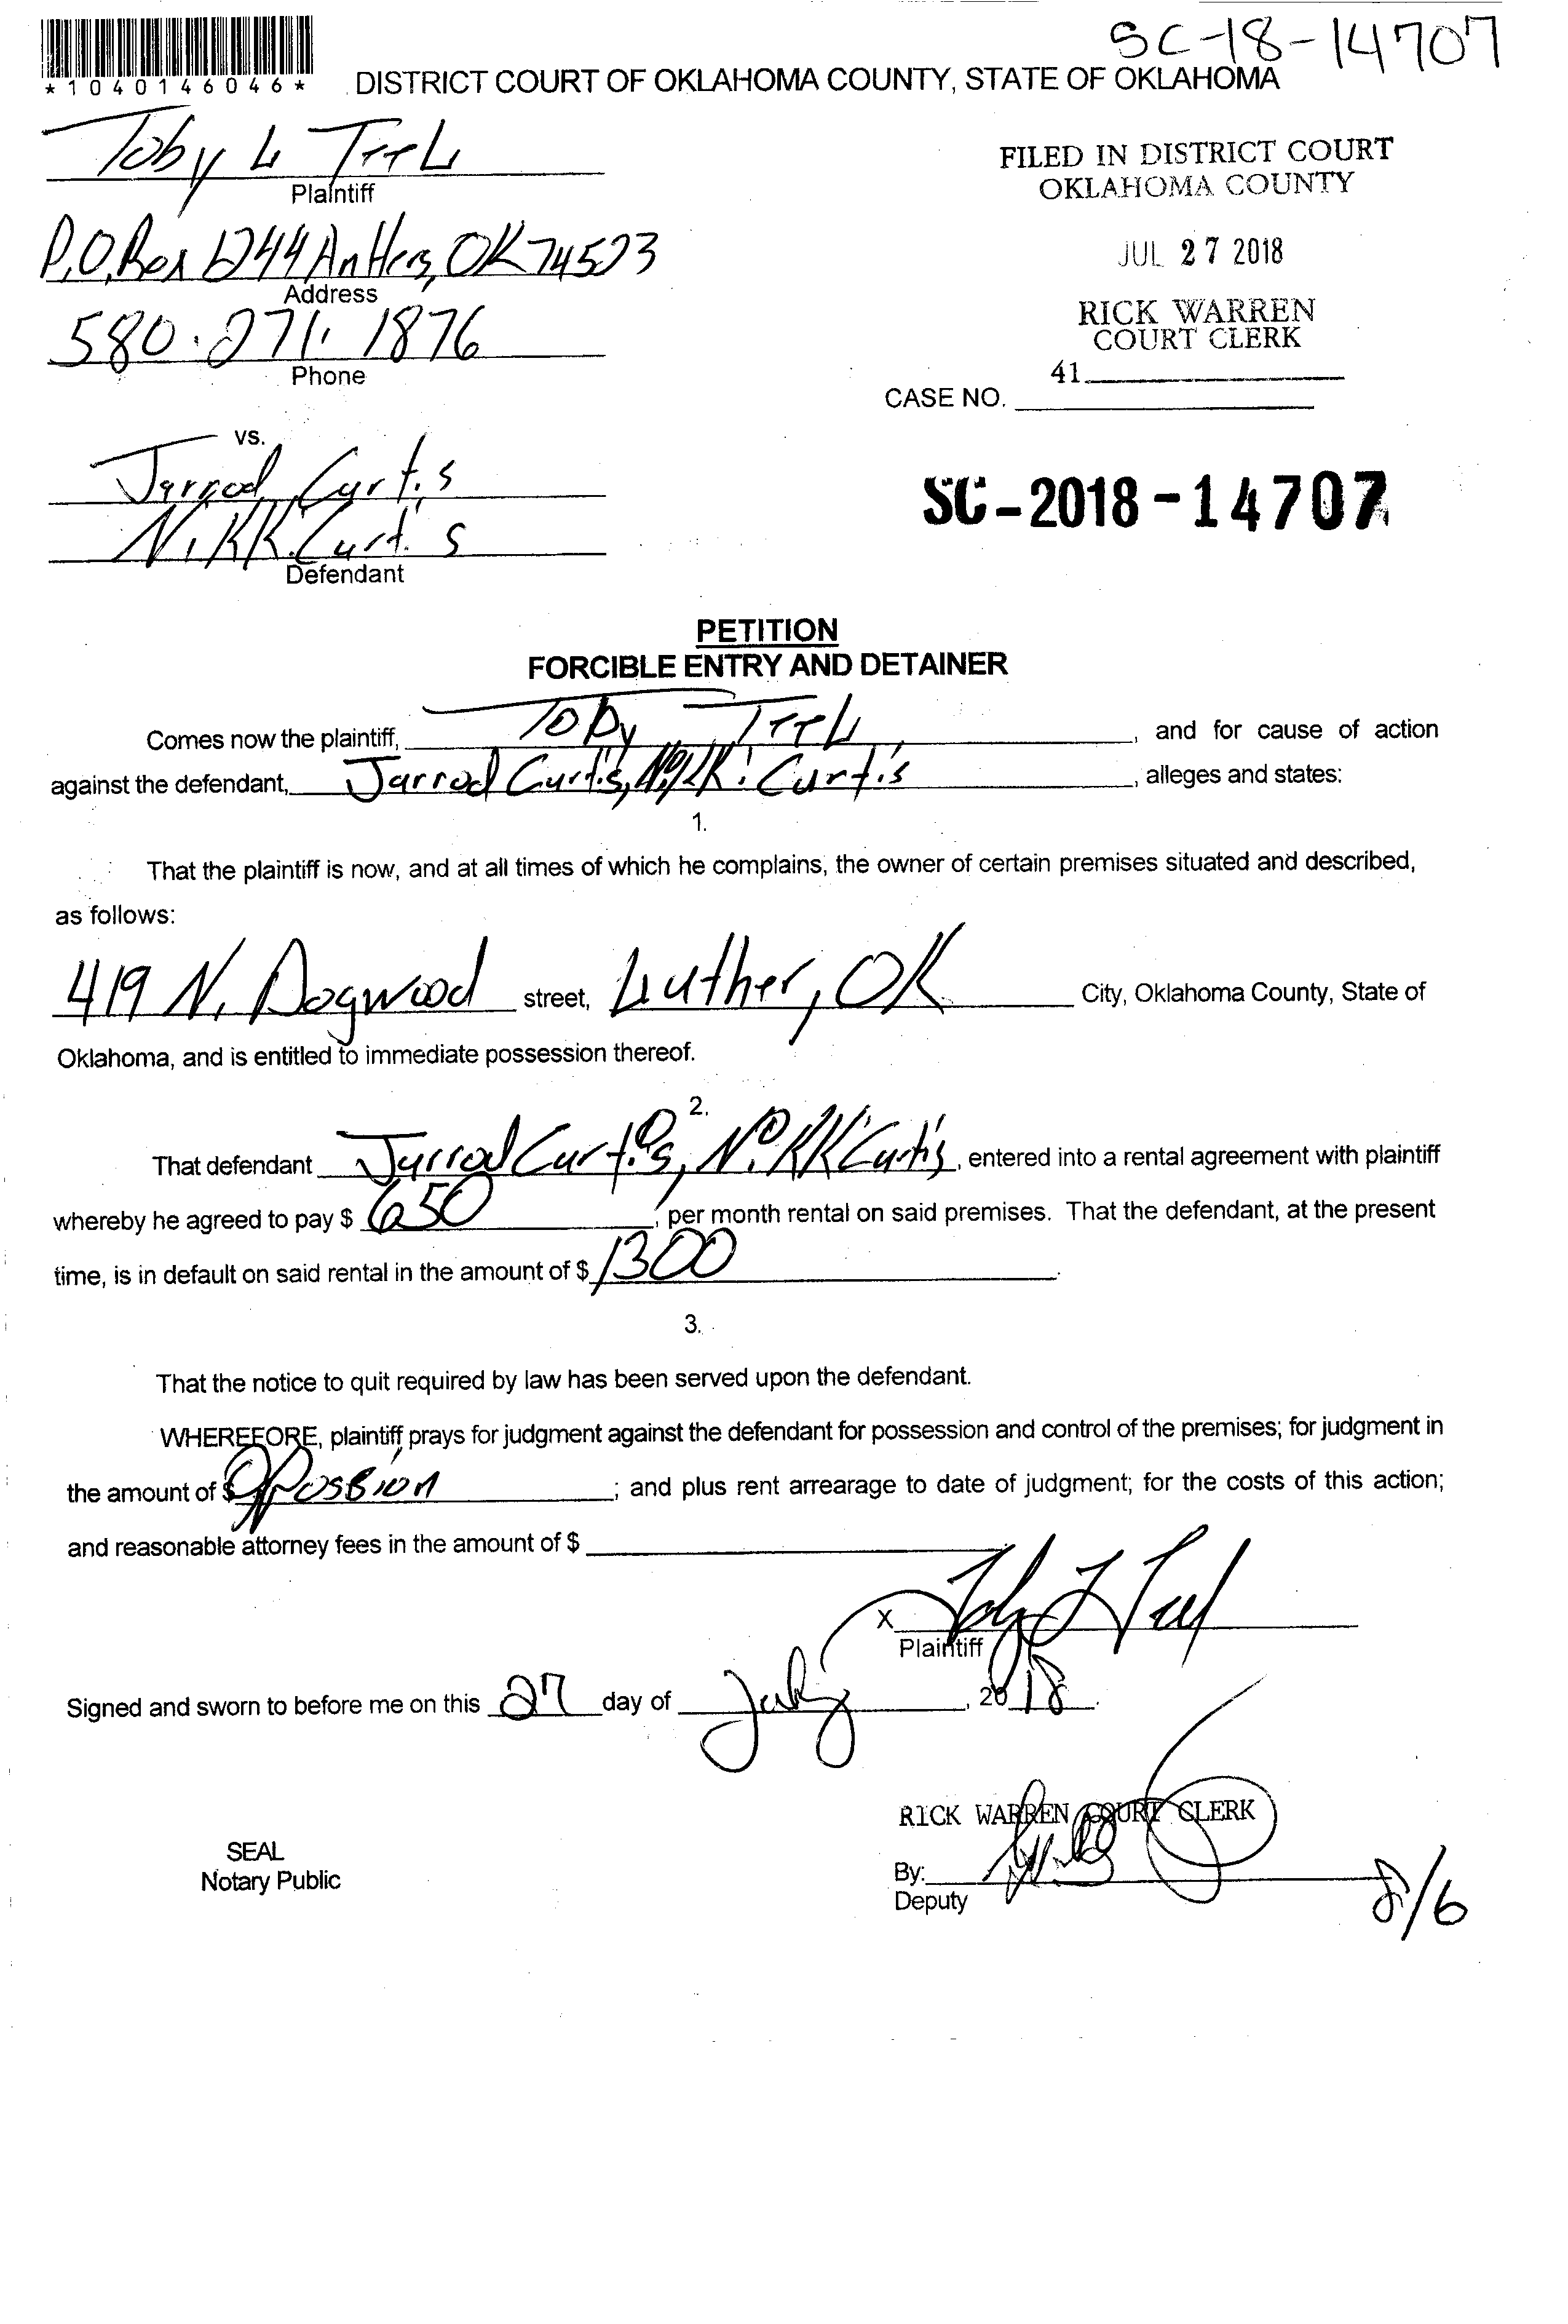 SC-18-14707
*1040146046*
DISTRICT COURT OF OKLAHOMA COUNTY, STATE OF OKLAHOMA
Toby L Teel
Plaintiff
FILED IN DISTRICT COURT
OKLAHOMA COUNTY
P.O. Box 1244 Antlers, OK 74523
Address
JUL 27 2018
580.271.1876
Phone
RICK WARREN
COURT CLERK
41
CASE NO.
vs.
Jarrod Curtis
Nikki Curtis
Defendant
SC-2018-14707
PETITION
FORCIBLE ENTRY AND DETAINER
Comes now the plaintiff, Toby Teel, and for cause of action
against the defendant, Jarrod Curtis, Nikki Curtis, alleges and states:
1.
That the plaintiff is now, and at all times of which he complains, the owner of certain premises situated and described,
as follows:
419 N. Dogwood street, Luther, OK City, Oklahoma County, State of
Oklahoma, and is entitled to immediate possession thereof.
2.
That defendant Jarrod Curtis, Nikki Curtis, entered into a rental agreement with plaintiff
whereby he agreed to pay $ 650, per month rental on said premises. That the defendant, at the present
time, is in default on said rental in the amount of $ 1300.
3.
That the notice to quit required by law has been served upon the defendant.
WHEREFORE, plaintiff prays for judgment against the defendant for possession and control of the premises; for judgment in
the amount of $ ; and plus rent arrearage to date of judgment; for the costs of this action;
and reasonable attorney fees in the amount of $
X Toby L Teel
Plaintiff
Signed and sworn to before me on this 27 day of July, 2018.
RICK WARREN COURT CLERK
SEAL
Notary Public
By:
Deputy
8/6